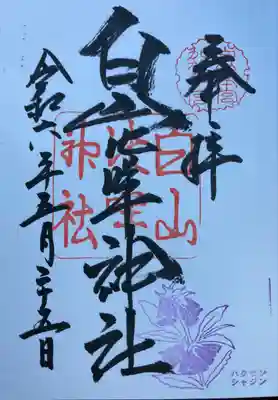 奉拝
白山比咩神社
令和六年五月二十五日
白山
神社
ハクサン
シャジン